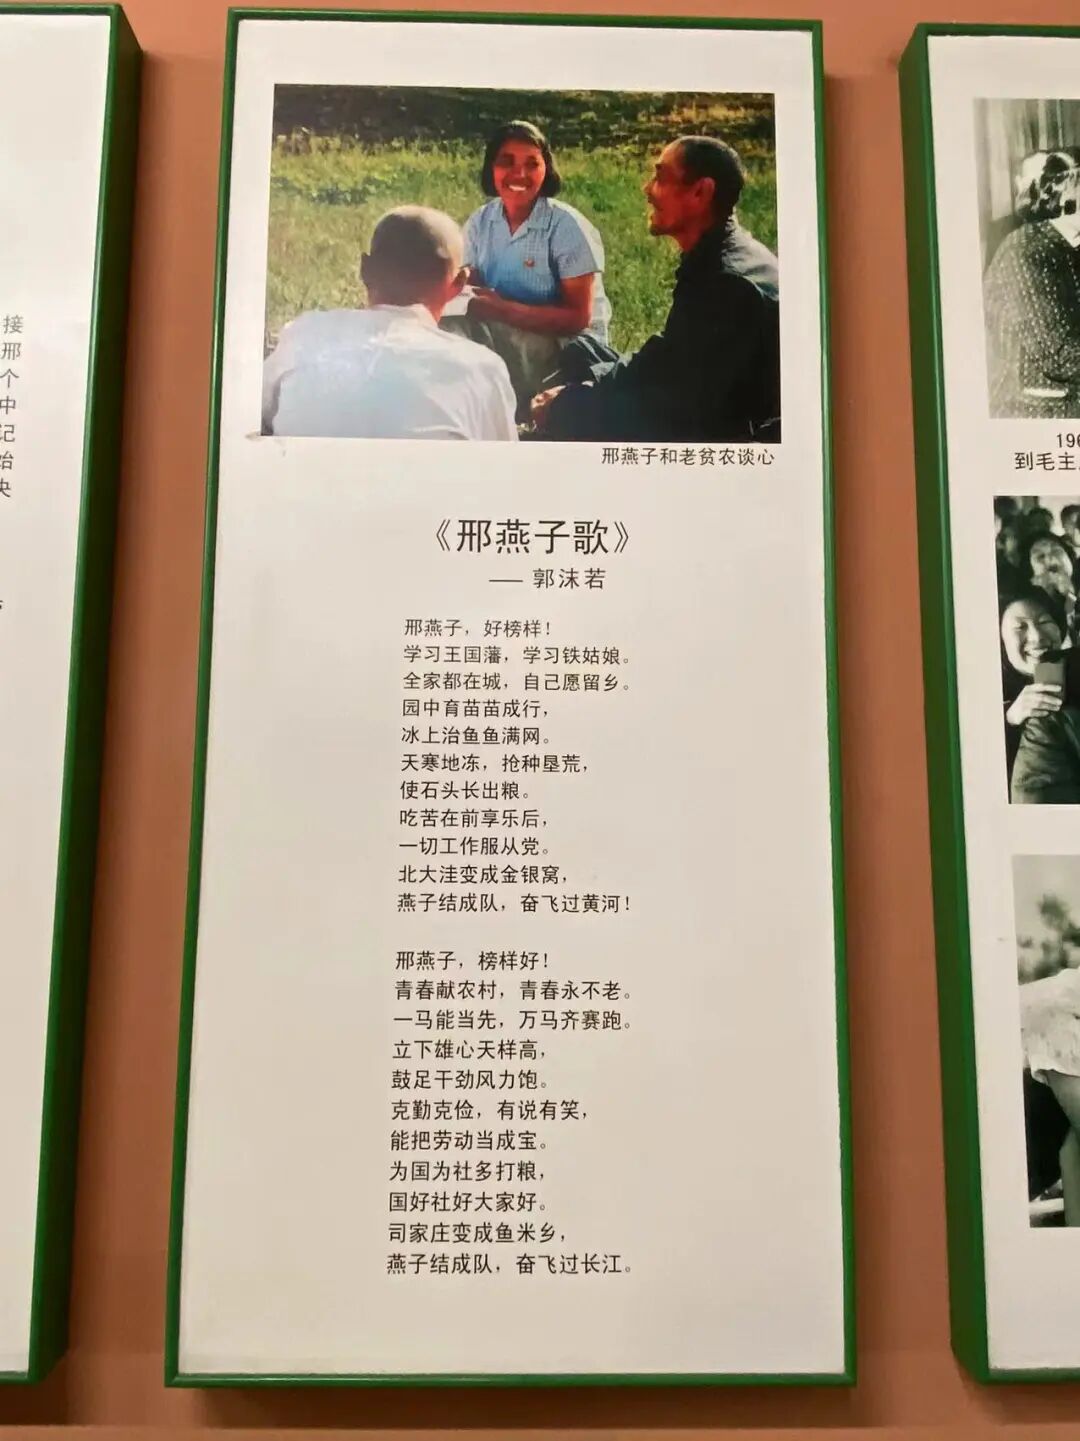 接
邢
个
中
记
始
央
邢燕子和老贫农谈心
《邢燕子歌》
—— 郭沫若
邢燕子，好榜样！
学习王国藩，学习铁姑娘。
全家都在城，自己愿留乡。
园中育苗苗成行，
冰上治鱼鱼满网。
天寒地冻，抢种垦荒，
使石头长出粮。
吃苦在前享乐后，
一切工作服从党。
北大洼变成金银窝，
燕子结成队，奋飞过黄河！
邢燕子，榜样好！
青春献农村，青春永不老。
一马能当先，万马齐赛跑。
立下雄心天样高，
鼓足干劲风力饱。
克勤克俭，有说有笑，
能把劳动当成宝。
为国为社多打粮，
国好社好大家好。
司家庄变成鱼米乡，
燕子结成队，奋飞过长江。
196
到毛主